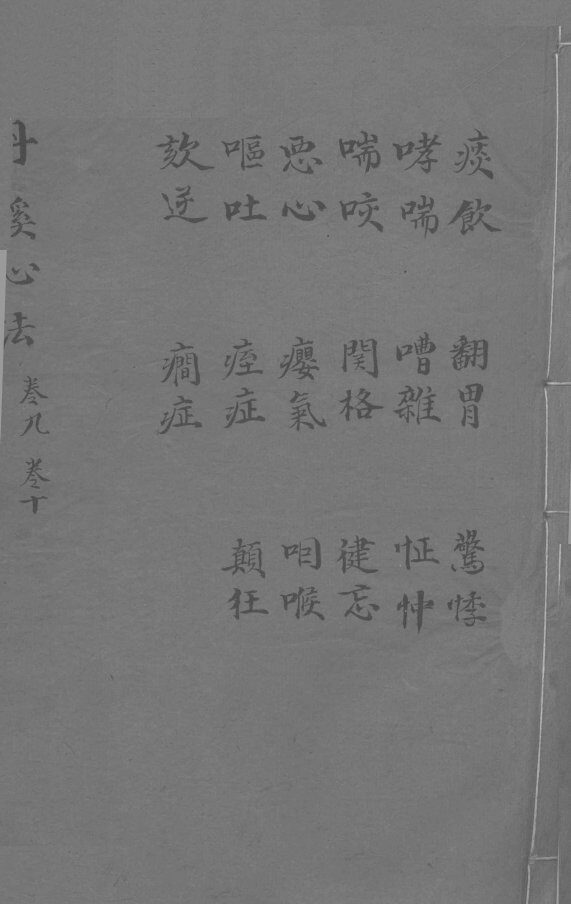 痰飲
哮喘
喘咳
悪心
嘔吐
欬逆
翻胃
嘈雜
関格
癭氣
痓症
癎症
驚悸
怔忡
徤忘
咽喉
顛狂
丹溪心法 卷九 卷十